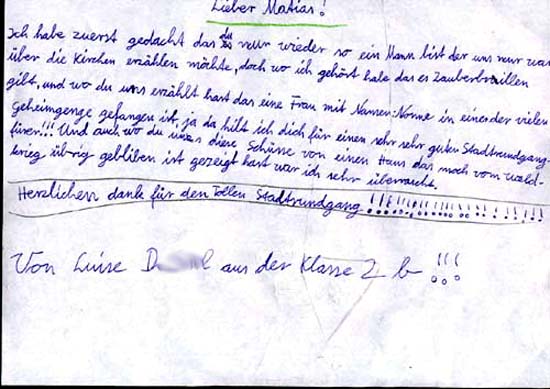 Lieber Matias!
Ich habe zuerst gedacht das du nur wieder so ein Mann bist der uns nur was
über die Kirchen erzählen möchte, doch wo ich gehört habe das es Zauberbrillen
gibt, und wo du uns erzählt hast das eine Frau mit Namen: Nonne in einer der vielen
Geheimgenge gefangen ist, ja da hilt ich dich für einen sehr sehr guten Stadtrundgang-
fürer!!! Und auch wo du uns diese Schüsse von einen Haus das noch vom weld-
krieg übrig gebliben ist gezeigt hast war ich sehr überrascht.
Herzlichen dank für den tollen Stadtrundgang!!!!!!!!!!!!!!!!!!!!
Von Luise aus der Klasse 2 b !!!